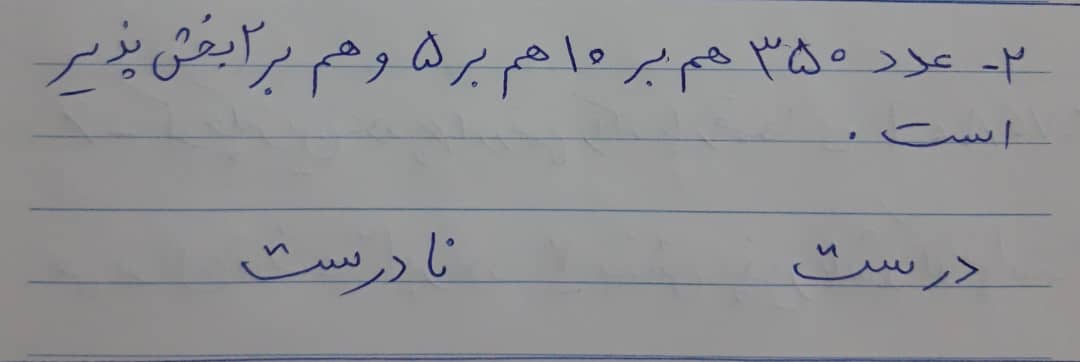 ۲- عدد ۳۵۰ هم بر ۱۰ هم بر ۵ و هم بر ۲ بخش پذیر
است .
درست نادرست